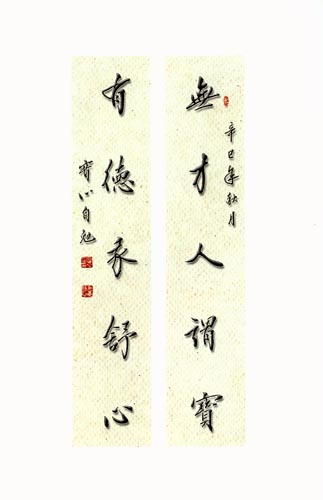 辛巳年秋月
無才人謂寶
有德我舒心
寶心自勉